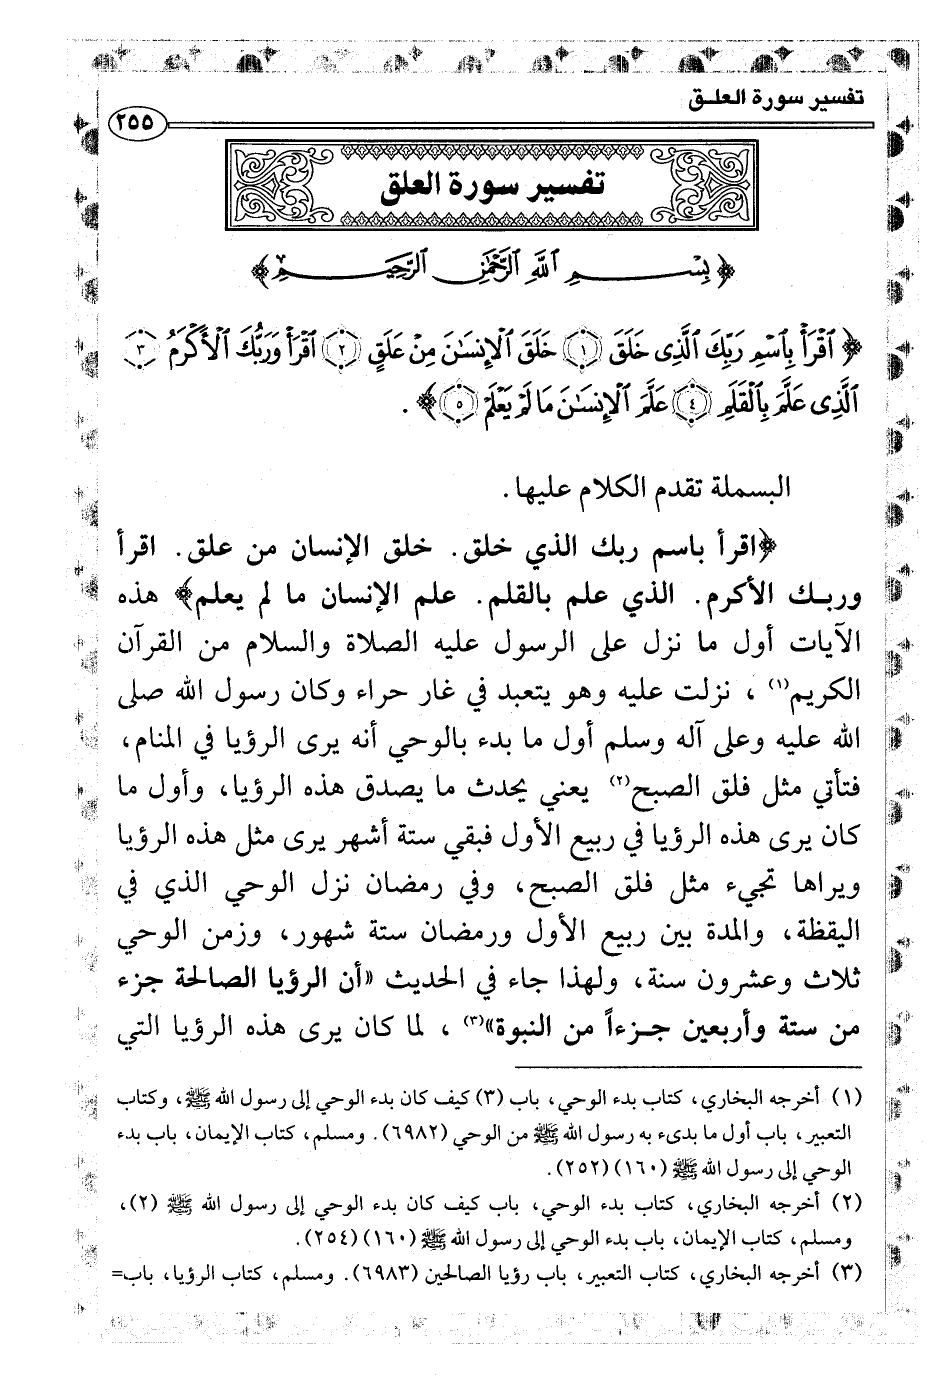 تفسير سورة العلـق
٢٥٥
تفسير سورة العلق
﴿بِسْمِ ٱللَّهِ ٱلرَّحْمَٰنِ ٱلرَّحِيمِ﴾
﴿ ٱقْرَأْ بِٱسْمِ رَبِّكَ ٱلَّذِى خَلَقَ ١ خَلَقَ ٱلْإِنسَٰنَ مِنْ عَلَقٍ ٢ ٱقْرَأْ وَرَبُّكَ ٱلْأَكْرَمُ ٣
ٱلَّذِى عَلَّمَ بِٱلْقَلَمِ ٤ عَلَّمَ ٱلْإِنسَٰنَ مَا لَمْ يَعْلَمْ ٥﴾ .
البسملة تقدم الكلام عليها.
﴿اقرأ باسم ربك الذي خلق. خلق الإنسان من علق. اقرأ
وربـك الأكرم. الذي علم بالقلم. علم الإنسان ما لم يعلم﴾ هذه
الآيات أول ما نزل على الرسول عليه الصلاة والسلام من القرآن
الكريم(١)، نزلت عليه وهو يتعبد في غار حراء وكان رسول الله صلى
الله عليه وعلى آله وسلم أول ما بدء بالوحي أنه يرى الرؤيا في المنام،
فتأتي مثل فلق الصبح(٢) يعني يحدث ما يصدق هذه الرؤيا، وأول ما
كان يرى هذه الرؤيا في ربيع الأول فبقي ستة أشهر يرى مثل هذه الرؤيا
ويراها تجيء مثل فلق الصبح، وفي رمضان نزل الوحي الذي في
اليقظة، والمدة بين ربيع الأول ورمضان ستة شهور، وزمن الوحي
ثلاث وعشرون سنة، ولهذا جاء في الحديث «أن الرؤيا الصالحة جزء
من ستة وأربعين جـزءاً من النبوة»(٣)، لما كان يرى هذه الرؤيا التي
(١) أخرجه البخاري، كتاب بدء الوحي، باب (٣) كيف كان بدء الوحي إلى رسول الله ﷺ، وكتاب
التعبير، باب أول ما بدىء به رسول الله ﷺ من الوحي (٦٩٨٢). ومسلم، كتاب الإيمان، باب بدء
الوحي إلى رسول الله ﷺ (١٦٠) (٢٥٢).
(٢) أخرجه البخاري، كتاب بدء الوحي، باب كيف كان بدء الوحي إلى رسول الله ﷺ (٢)،
ومسلم، كتاب الإيمان، باب بدء الوحي إلى رسول الله ﷺ (١٦٠) (٢٥٤).
(٣) أخرجه البخاري، كتاب التعبير، باب رؤيا الصالحين (٦٩٨٣). ومسلم، كتاب الرؤيا، باب=